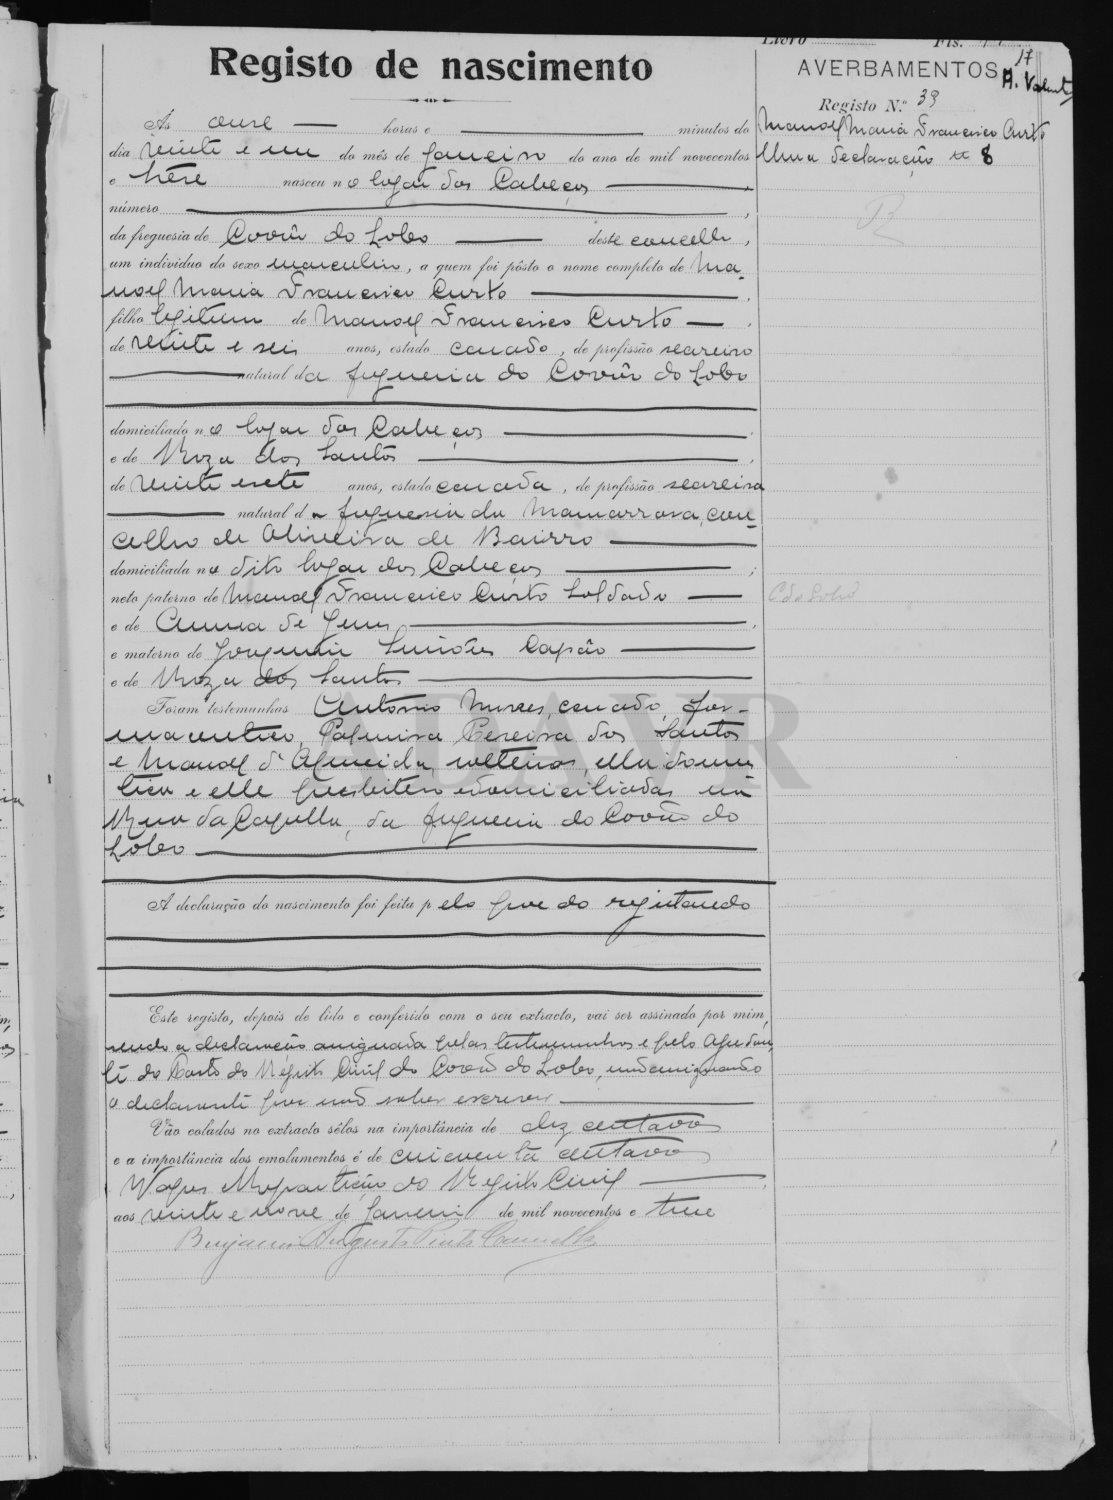 Livro Fls. 17
Registo de nascimento
AVERBAMENTOS
A. Valente
Registo N.º 39
Manoel Maria Francisco Curto
Uma declaração 8
Às onze horas e minutos do
dia vinte e um do mês de Janeiro do ano de mil novecentos
e trese nasceu no logar dos Cabeços,
número,
da freguesia de Covão do Lobo deste concelho,
um individuo do sexo masculino, a quem foi pôsto o nome completo de Ma-
noel Maria Francisco Curto,
filho legitimo de Manoel Francisco Curto
de vinte e seis anos, estado casado, de profissão seareiro
natural da freguesia do Covão do Lobo
domiciliado no logar dos Cabeços
e de Roza dos Santos,
de vinte e sete anos, estado casada, de profissão seareira
natural da freguesia da Mamarrosa, con-
celho de Oliveira do Bairro
domiciliada no dito logar dos Cabeços;
neto paterno de Manoel Francisco Curto Soldado
e de Anna de Jesus,
e materno de Joaquim Simões Capão
e de Roza dos Santos
Foram testemunhas Antonio Nunes, casado, far-
maceutico, Palmira Pereira dos Santos
e Manoel d'Almeida, solteiros, ella domes-
tica e elle presbitero e domiciliados na
Rua da Capella, da freguesia do Covão do
Lobo
A declaração do nascimento foi feita pelo pae do registando
Este registo, depois de lido e conferido com o seu extracto, vai ser assinado por mim,
sendo a declaração assignada pelas testemunhas e pelo Ajudan-
te do Posto do Registo Civil do Covão do Lobo, não assignando
o declarante por não saber escrever
Vão colados no extracto sêlos na importância de dez centavos
e a importância dos emolumentos é de cincoenta centavos
Vagos Repartição do Registo Civil,
aos vinte e nove de Janeiro de mil novecentos e treze
Benjamin Augusto Pinto Camello
C do Lobo
ADAVR